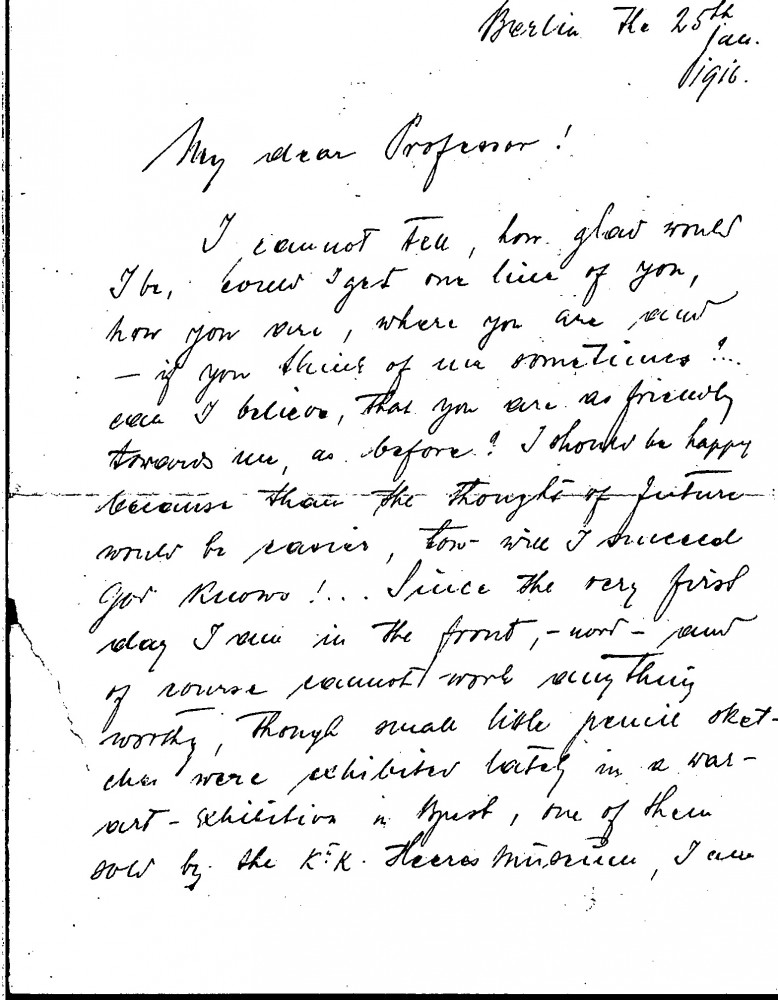 Berlin the 25th
jan.
1916.
My dear Professor!
I cannot tell, how glad would
I be, could I get one line of you,
how you are, where you are and
– if you think of me sometimes?...
can I believe, that you are as friendly
towards me, as before? I should be happy
because than the thought of future
would be easier, how will I succeed
God knows!... Since the very first
day I am in the front, - now - and
of course cannot work anything
worthy, though small little pencil sket-
ches were exhibited lately in a war-
art-exhibition in Bpest, one of them
sold by the K. K. Heeres Museum, I am